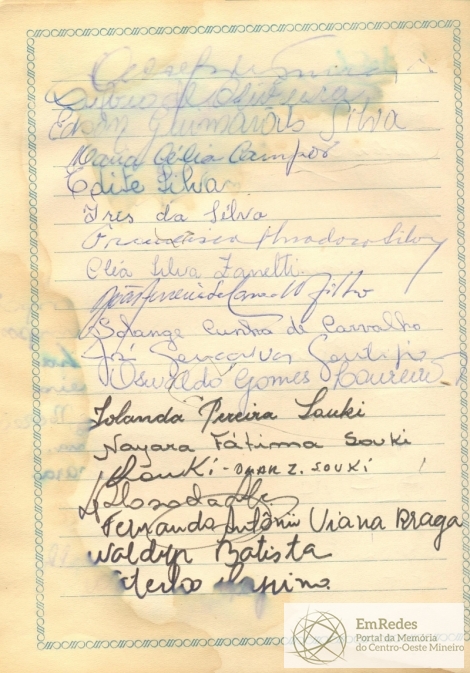 de Oliveira
Edson Guimarães Silva
Maria Célia Campos
Edite Silva
Ires da Silva
Francisca Theodoro Silva
Cléa Silva Zanetti
João Ferreira de Carvalho Filho
Solange Cunha de Carvalho
José Gonçalves
Osvaldo Gomes Laureiro
Iolanda Pereira Souki
Nayara Fátima Souki
Souki - OMAR Z. SOUKI
Fernando Antônio Viana Braga
Waldyr Batista
EmRedes
Portal da Memória
do Centro-Oeste Mineiro